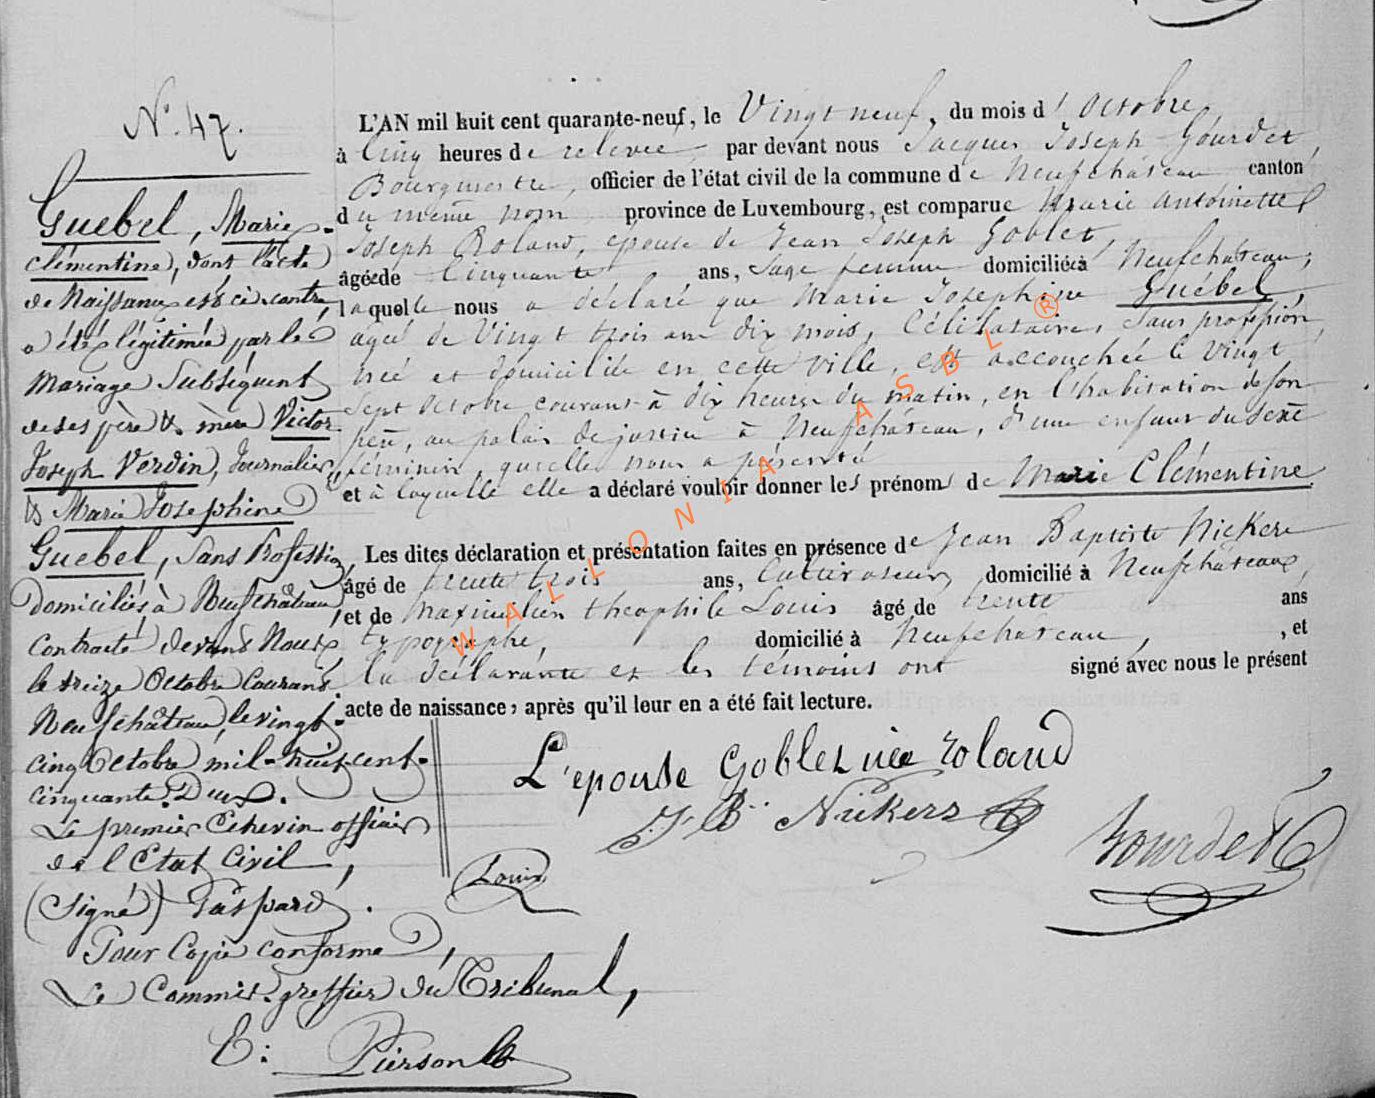 N° 47.
Guebel, Marie
clémentine, dont l'acte
de Naissance est ci-contre,
a été légitimée par le
Mariage Subséquent
de ses père & mère Victor
Joseph Verdin, Journalier,
& Marie Josephine
Guebel, Sans Profession,
Domiciliés à Neufchâteau,
Contracté devant Nous
le treize Octobre Courant.
Neufchâteau, le vingt-
cinq Octobre mil-huit-cent-
cinquante-Deux.
Le premier Echevin officier
de l'Etat Civil,
(Signé) Gaspard.
Pour Copie conforme,
Le Commis-greffier du Tribunal,
E: Pierson
L'AN mil huit cent quarante-neuf, le Vingt neuf, du mois d'Octobre
à Cinq heures de relevée, par devant nous Jacques Joseph Gourdet,
Bourgmestre, officier de l'état civil de la commune de Neufchâteau canton
du même nom province de Luxembourg, est comparue Marie Antoinette
Joseph Roland, épouse de Jean Joseph Goblet,
âgée de Cinquante ans, Sage femme domiciliée à Neufchâteau,
laquelle nous a déclaré que Marie Josephine Guébel
agée de Vingt trois ans dix mois, Célibataire, sans profession,
née et domiciliée en cette Ville, est accouchée le Vingt
Sept Octobre courant à dix heures du matin, en l'habitation de son
père, au palais de justice à Neufchâteau, d'une enfant du sexe
féminin, qu'elle nous a présenté
et à laquelle elle a déclaré vouloir donner les prénoms de Marie Clémentine
Les dites déclaration et présentation faites en présence de Jean Baptiste Nickers
âgé de trente trois ans, Cultivateur, domicilié à Neufchâteau,
et de Maximilien théophile Louis âgé de trente ans
typographe, domicilié à Neufchâteau, , et
la déclarante et les témoins ont signé avec nous le présent
acte de naissance, après qu'il leur en a été fait lecture.
L'épouse Goblet née roland
J. B. Nickers
Gourdet
Louis
WALLONIA ASBL ®